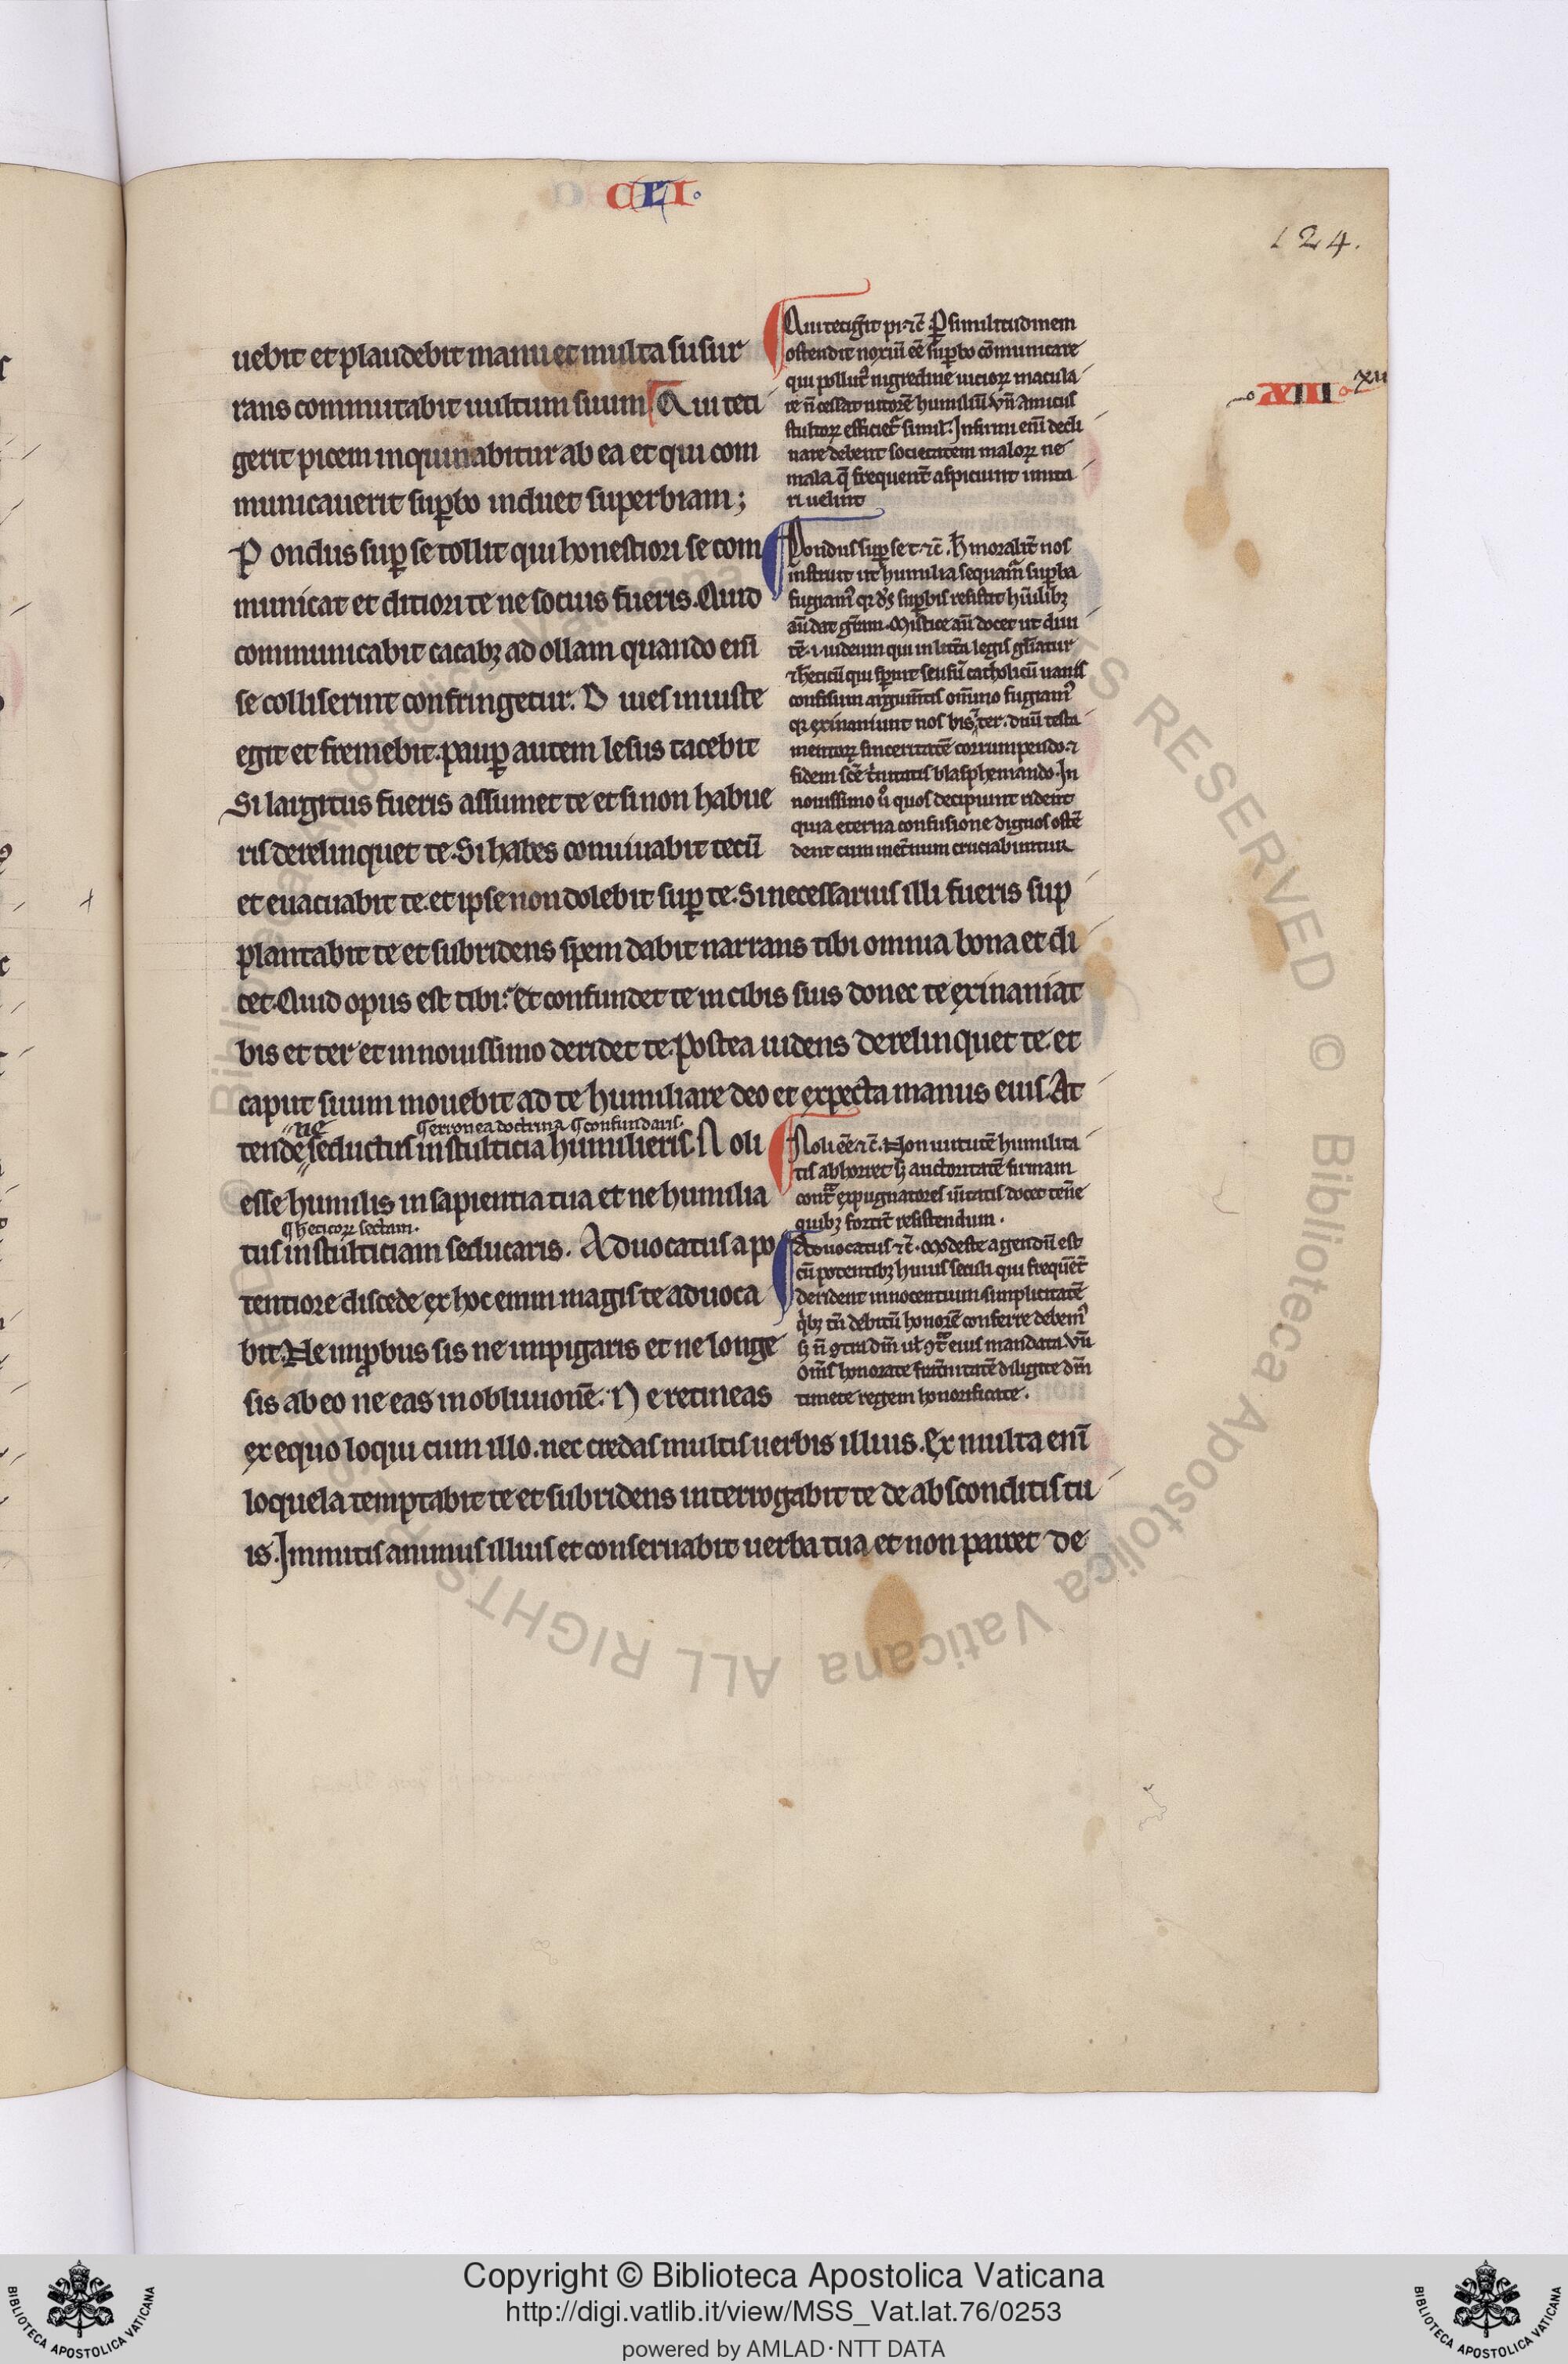 CLI.
124.
uebit et plaudebit manu et multa susur
rans commutabit uultum suum Qui teti
gerit picem inquinabitur ab ea et qui com
municauerit suꝑbo induet superbiam;
Pondus suꝑ se tollit qui honestiori se com
municat et ditiori te ne socius fueris. Quid
communicabit cacabꝫ ad ollam quando enī
se colliserint confringetur. Diues iniuste
egit et fremebit. pauꝑ autem lesus tacebit
Si largitus fueris assumet te et si non habue
ris derelinquet te. Si habes conuiuabit tecū
et euacuabit te. et ipse non dolebit suꝑ te. Si necessarius illi fueris sup
plantabit te et subridens spem dabit narrans tibi omnia bona et di
cet. Quid opus est tibi. Et confundet te in cibis suis donec te exinaniat
bis et ter et in nouissimo deridet te. Postea uidens derelinquet te. et
caput suum mouebit ad te humiliare deo et expecta manus eius. At
ne
¶ erronea doctrina ¶ confundaris.
tende seductus in stulticia humilieris. Noli
esse humilis in sapientia tua et ne humilia
¶ heticoꝝ sectam.
tus in stulticiam seducaris. Aduocatus a po
tentiore discede ex hoc enim magis te aduoca
bit. Ne imꝓbus sis ne impigaris et ne longe
sis ab eo ne eas in obliuionē. Ne retineas
ex equo loqui cum illo. nec credas multis uerbis illius. Ex multa enī
loquela temptabit te et subridens interrogabit te de absconditis tu
is. Inmitis animus illius et conseruabit uerba tua et non parcet de
Qui tetigīt pi. ⁊c̄ ꝑ similitudinem
ostendit noxiū eē suꝑbo cōmunicare
qui pollutꝰ nigredine uicioꝝ macula
re n̄ cessat nitorē humiliū. Vn̄ amicus
stultoꝝ efficiet᷑ simil᷑. Infirmi enī decli
nare debent societatem maloꝝ ne
mala q̄ frequent̄ aspiciunt imita
ri uelint
Pondus suꝑ se t. ⁊c̄. H̄ moralit̄ nos
instruit ut humilia sequam᷑ suꝑba
fugiamꝰ qꝛ ds̄ suꝑbis resistit hūilibꝫ
aū dat gr̄am. Mistice aū docet ut diui
tē .i. iudeum qui in litt̄a legis gl̄iatur
⁊ h̄eticū qui sꝑnit sensū catholicū uanis
confisum argum̄tis om̄ino fugiamꝰ
qꝛ exinaniunt nos bis ⁊ ter. duū testa
mentoꝝ sinceritatē corrumpendo. ⁊
fidem scē t̄nitatis blasphemando. In
nouissimo ū quos decipiunt rident
quia eterna confusione dignos ostē
dent cum inet̄num cruciabuntur
VIII
xii
Noli eē. ⁊c̄. Non uirtutē humilita
tis abhorret sꝫ auctoritatē firmam
cont̄ expugnatores ūitatis docet ten̄e
quibꝫ fortit̄ resistendum.
Aduocatus ⁊c̄. Modeste agendū est
cū potentibꝫ huius seculi qui frequēt̄
derident innocentium simplicitatē
qͥbꝫ tn̄ debitū honorē conferre debemꝰ
sꝫ n̄ ꝯtra dm̄ ul̄ ꝯͣ eius mandata. Vn̄
Om̄s honorate frat̄nitatē diligite dm̄
timete regem honorificate.
Copyright © Biblioteca Apostolica Vaticana
http://digi.vatlib.it/view/MSS_Vat.lat.76/0253
powered by AMLAD·NTT DATA
BIBLIOTECA APOSTOLICA VATICANA
BIBLIOTECA APOSTOLICA VATICANA
© Biblioteca Apostolica Vaticana ALL RIGHTS RESERVED